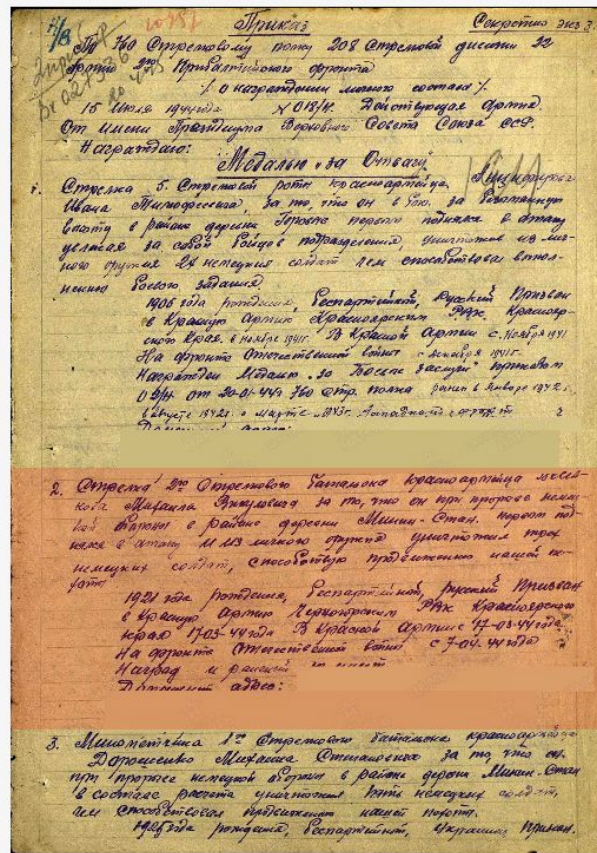 Приказ Секретно экз 3.
По 760 Стрелковому полку 208 Стрелковой дивизии 22
Армии 2го Прибалтийского фронта
/. О награждении личного состава /.
15 Июля 1944 года N 018/н. Действующая Армия.
От имени Президиума Верховного Совета Союза ССР.
Награждаю:
Медалью "за Отвагу"
1. Стрелка 5 Стрелковой роты красноармейца
Ивана Тимофеевича, за то, что он в бою за безымянную
высоту в районе деревни первого поднялся в атаку
увлекая за собой бойцов подразделения, уничтожив из лич-
ного оружия 2х немецких солдат чем способствовал выпол-
нению боевого задания.
1906 года рождения, беспартийный, русский Призван
в Красную Армию Красноярским РВК, Краснояр-
ского Края. в ноябре 1941г. В Красной Армии с. Ноября 1941
На фронте Отечественной войны с декабря 1941г.
Награжден Медалью "за Боевые заслуги" приказом
от 20-01-44г 760 стр. полка ранен в Январе 1942г.
в августе 1942г. в марте 1943г.
2. Стрелка 2го Стрелкового батальона красноармейца
Михаила за то, что он при прорыве немец-
кой обороны в районе деревни Минин-Стан. первого под-
нялся в атаку и из личного оружия уничтожил трех
немецких солдат, способствуя продвижению нашей пе-
хоты
1921 года рождения, беспартийный, русский Призван
в Красную Армию Черногорским РВК Красноярского
края 17-03-44 года В Красной Армии с 17-03-44 года
На фронте Отечественной войны с 7-04-44 года
Наград и ранений не имеет
Домашний адрес:
3. Минометчика 1го Стрелкового батальона красноармейца
Дорошенко Михаила Степановича за то, что он
при прорыве немецкой обороны в районе дерони Минин-Стан
в составе расчета уничтожил пять немецких солдат,
чем способствовал продвижению нашей пехоты.
1925 года рождения, беспартийный, украинец Призван.